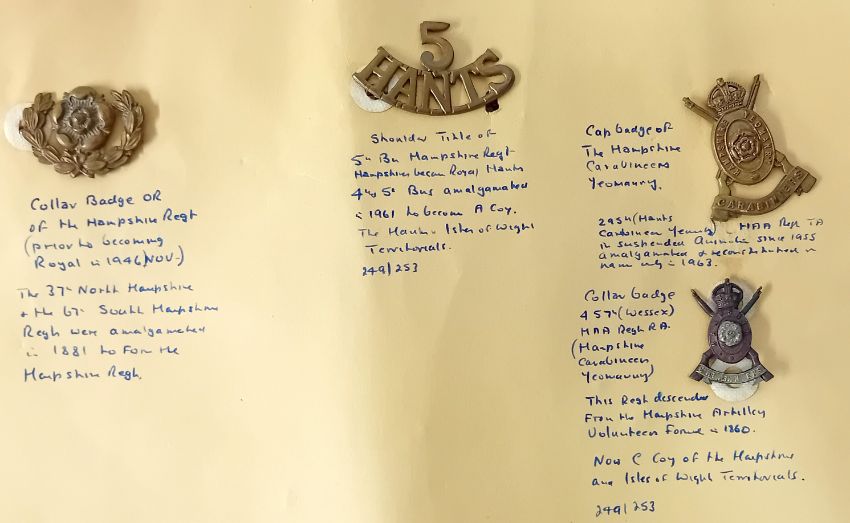 Collar Badge OR
of the Hampshire Regt
(prior to becoming
Royal in 1946 NOV.)
The 37th North Hampshire
& the 67th South Hampshire
Regts were amalgamated
in 1881 to form the
Hampshire Regt.
5
HANTS
Shoulder Title of
5th Bn Hampshire Regt
Hampshires became Royal Hants
4th 5th Bns amalgamated
in 1961 to become A Coy.
The Hants Isles of Wight
Territorials.
249/253
Cap badge of
The Hampshire
Carabineers
Yeomanry.
295th (Hants
Carbineer Yeomry) HAA Regt TA
in suspended since 1955
amalgamated & reconstituted in
name only in 1963.
CARABINIERS
Collar badge
457th (Wessex)
HAA Regt RA.
(Hampshire
Carabineers
Yeomanry)
This Regt descended
From the Hampshire Artillery
Volunteers Formed in 1860.
Now C Coy of the Hampshire
and Isles of Wight Territorials.
249/253